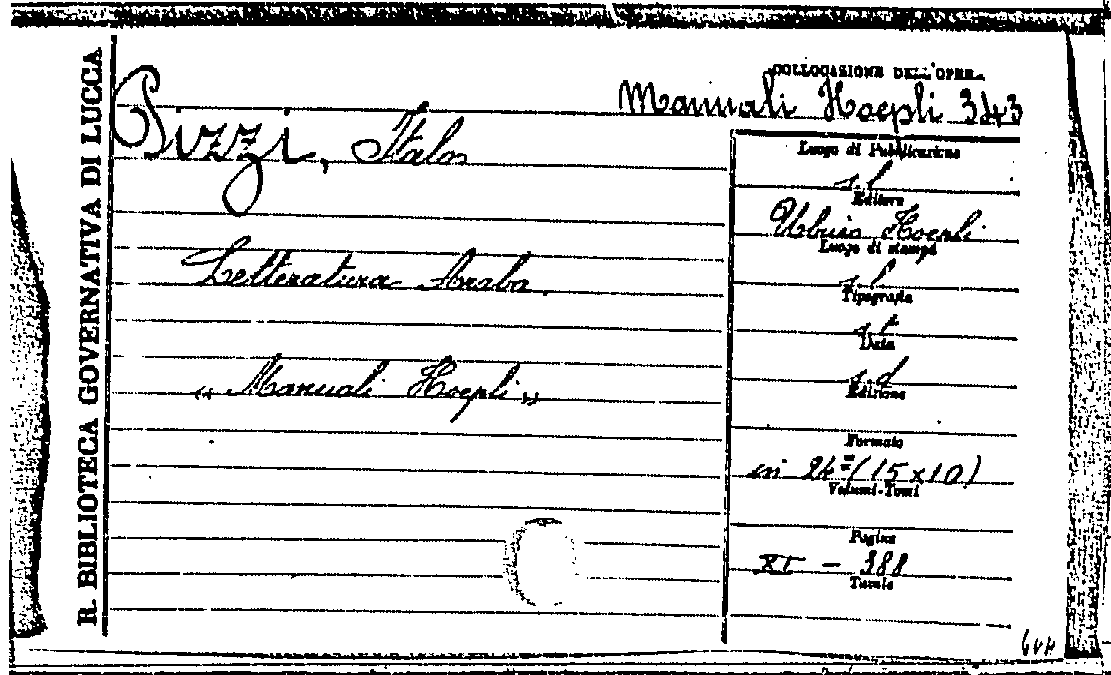 R. BIBLIOTECA GOVERNATIVA DI LUCCA
COLLOCAZIONE DELL'OPERA
Manuali Hoepli 343
Pizzi, Italo
Letteratura Araba.
« Manuali Hoepli »
Luogo di Pubblicazione
s. l.
Editore
Ulrico Hoepli
Luogo di stampa
s. l.
Tipografia
s. t.
Data
s. d.
Edizione
Formato
in 24º (15 x 10)
Volumi-Tomi
Pagine
XI - 388
Tavole